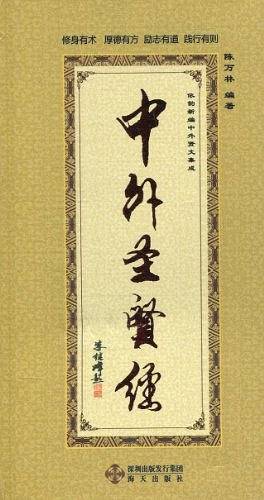 修身有术 厚德有方 励志有道 践行有则
陈万林 编著
依韵新编中外贤文集成
中外圣贤经
深圳出版发行集团
海天出版社